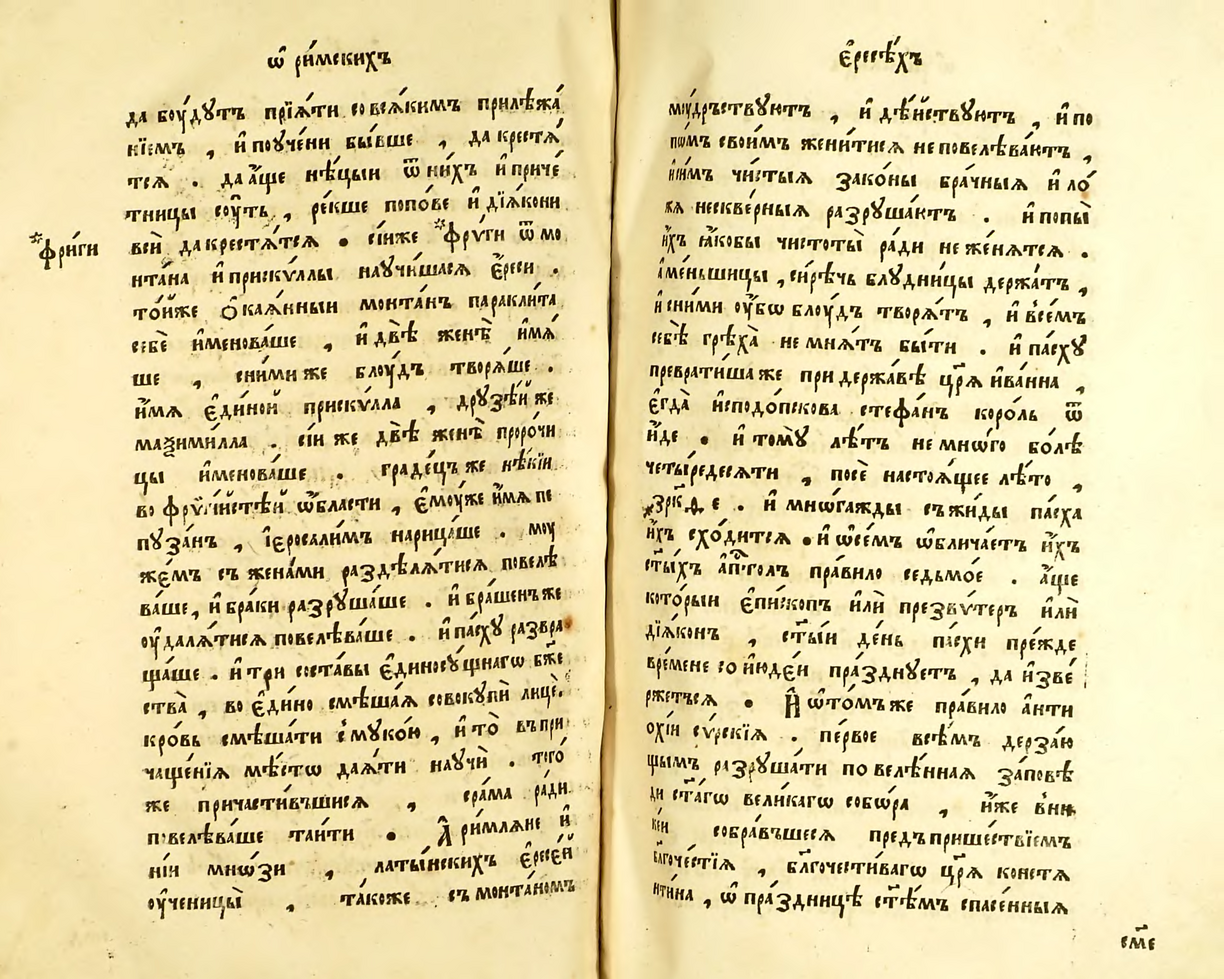 ѿ ри́мскихъ
да боу́дꙋтъ прїѧ́ти совсѧ́кимъ прилѣжа́
нїемъ , и҆поуче́ни бы́вше , да крестѧ́
тсѧ . да а҆́ще нѣ́цыи ѿ ни́хъ и҆ приче́
тницы сѹ́ть , ре́кше попо́ве и҆ дїѧ́кони
*фри́ги
всѝ да крестѧ́тсѧ . сі́иже *фрѵ́ги ѿ мо
нта́на и҆ прискѵ́ллы наꙋчи́шасѧ є҆́реси .
то́йже ѻ҆каѧ́нныи монта́нъ паракли́та
себѐ и҆менова́ше , и҆ двѣ̀ женѣ̀ и҆мѧ́
ше , сни́миже блоу́дъ творѧ́ше .
и҆́мѧ є҆ди́ной прискѵ́лла , дрꙋзѣ́й же
маѯими́лла . сі́и же двѣ̀ женѣ̀ проро́чи
цы и҆менова́ше . граде́цъ же нѣ́кїи
во фрѵгі́йстѣй ѡ҆́бласти , є҆моу́же и҆́мѧ пе
пꙋза́нъ , і҆єросали́мъ нарица́ше . моу
же́мъ съ жена́ми раздѣлѧ́тисѧ повелѣ
ва́ше , и҆ бра́ки разрꙋша́ше . и҆ бра́шенъ же
оу҆далѧ́тисѧ повелѣва́ше . и҆ па́схꙋ развра
ща́ше . и҆ трѝ соста́вы є҆диносꙋ́щнагѡ бж҃е
ства̀ , во є҆ди́но смѣша́ѧ совокꙋпѝ лицѐ .
кро́вь смѣша́ти с̾ мꙋко́ю , и҆ то̀ въ при
чаще́нїѧ мѣ́стѡ даѧ́ти наꙋчѝ . того́
же причасти́вшиисѧ , сра́ма ра́ди
повелѣва́ше таи́ти . А҆ ри́млѧне и҆
ні́и мнѡ́зи , латы́нскихъ є҆ресе́й
оу҆ченицы̀ , та́коже съ монта́номъ
є҆́ресѣхъ
мꙋ́дръствꙋютъ , и҆ дѣ́йствꙋютъ , и҆ по
пѡ́мъ свои́мъ жени́тисѧ не повелѣва́ютъ ,
и҆ си́мъ чи́стыѧ зако́ны бра́чныѧ и҆ ло́
жѧ нескве́рныѧ разрꙋша́ютъ . и҆ попы̀
и҆́хъ ꙗ҆́кобы чистоты̀ ра́ди не же́нѧтсѧ .
а҆ ме́ньшицы , си́рѣчь блꙋдни́цы держа́тъ ,
и҆ сни́ми оу҆́бѡ блоу́дъ творѧ́тъ , и҆ в̾се́мъ
себѣ̀ грѣха̀ не мнѧ́тъ бы́ти . и҆ па́схꙋ
преврати́ша же при держа́вѣ цр҃ѧ̀ и҆ва́нна ,
є҆гда̀ и҆сподо́пскова стефа́нъ коро́ль ѿ
и҆́де . и҆ томꙋ̀ лѣ́тъ не мно́гѡ бо́лѣ
четы́редесѧти , посѐ настоѧ́щее лѣ́то ,
и҆ мно́гажды съ жи́ды па́сха
и҆́хъ схо́дитсѧ . и҆ ѡ҆се́мъ ѡ҆блича́етъ и҆́хъ
ст҃ы́хъ а҆пⷭ҇толъ пра́вило седьмо́е . а҆́ще
кото́рыи є҆пи́скопъ и҆лѝ презвѵ́теръ и҆лѝ
дїѧ́конъ , ст҃ы́и де́нь па́схи пре́жде
вре́мене со и҆юде́и пра́зднꙋетъ , да и҆зве́
ржетсѧ . И҆ ѡ҆то́мъже пра́вило а҆нти
охі́и сѵ́рскїѧ . пе́рвое всѣ́мъ дерза́ю
щымъ разрꙋша́ти повелѣ́ннаѧ за́повѣ
ди ст҃а́гѡ вели́кагѡ собо́ра , и҆́же в̾ ни
ке́и собра́вшесѧ предъ прише́ствїемъ
благоче́стїѧ , бл҃гочести́вагѡ цр҃ѧ̀ констѧ
нти́на , ѡ҆ пра́здницѣ ст҃ѣ́мъ спасе́нныѧ
см҃е